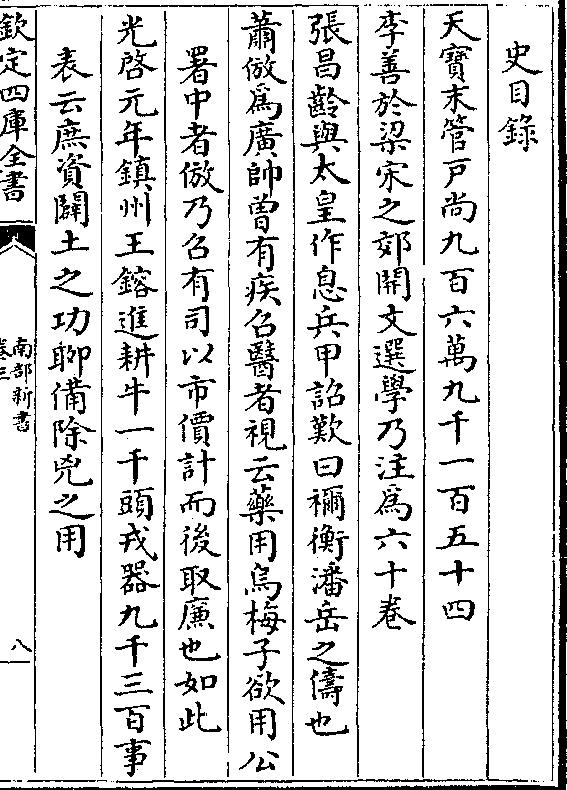 史目錄
天寶末管戸尚九百六萬九千一百五十四
李善於梁宋之郊開文選學乃注爲六十卷
張昌齡與太皇作息兵甲詔歎曰禰衡潘岳之儔也
蕭倣爲廣帥曽有疾召醫者視云藥用烏梅子欲用公
署中者倣乃召有司以市價計而後取廉也如此
光啓元年鎮州王鎔進耕牛一千頭戎器九千三百事
表云庶資闢土之功聊備除兇之用
欽定四庫全書
南部新書
卷三
八